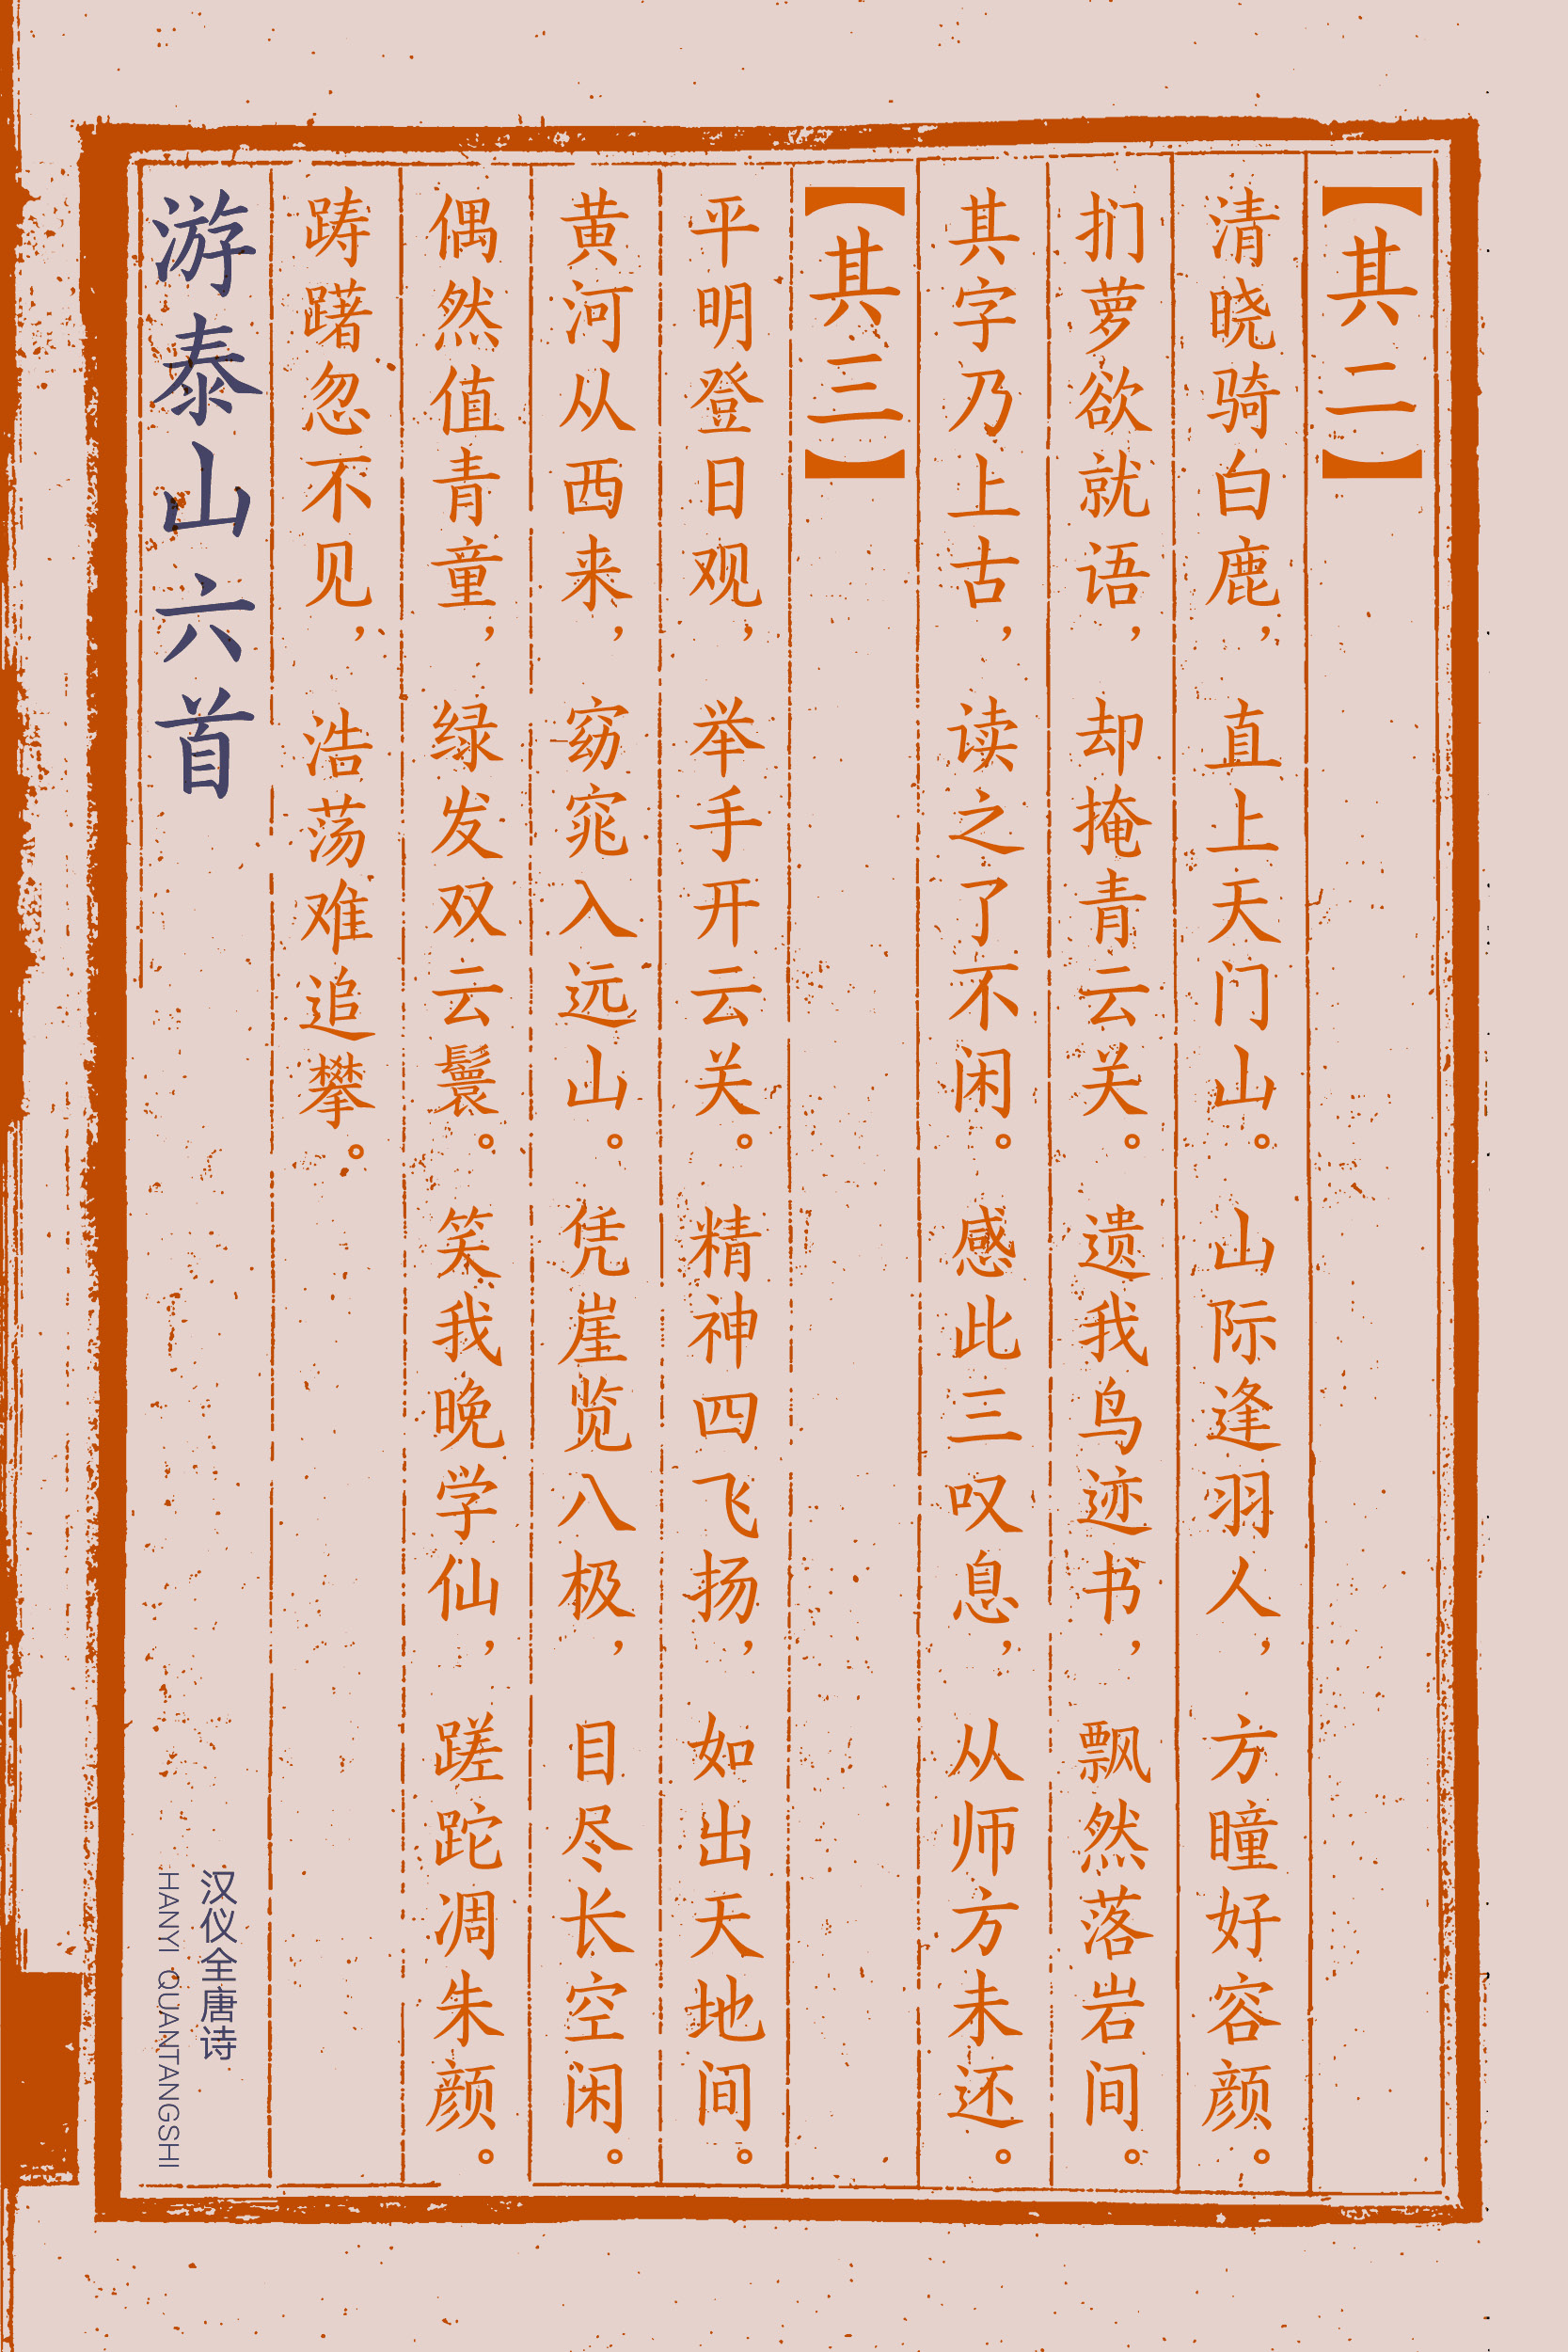 【其二】
清晓骑白鹿，直上天门山。山际逢羽人，方瞳好容颜。
扪萝欲就语，却掩青云关。遗我鸟迹书，飘然落岩间。
其字乃上古，读之了不闲。感此三叹息，从师方未还。
【其三】
平明登日观，举手开云关。精神四飞扬，如出天地间。
黄河从西来，窈窕入远山。凭崖览八极，目尽长空闲。
偶然值青童，绿发双云鬟。笑我晚学仙，蹉跎凋朱颜。
踌躇忽不见，浩荡难追攀。
游泰山六首
汉仪全唐诗
HANYI QUANTANGSHI